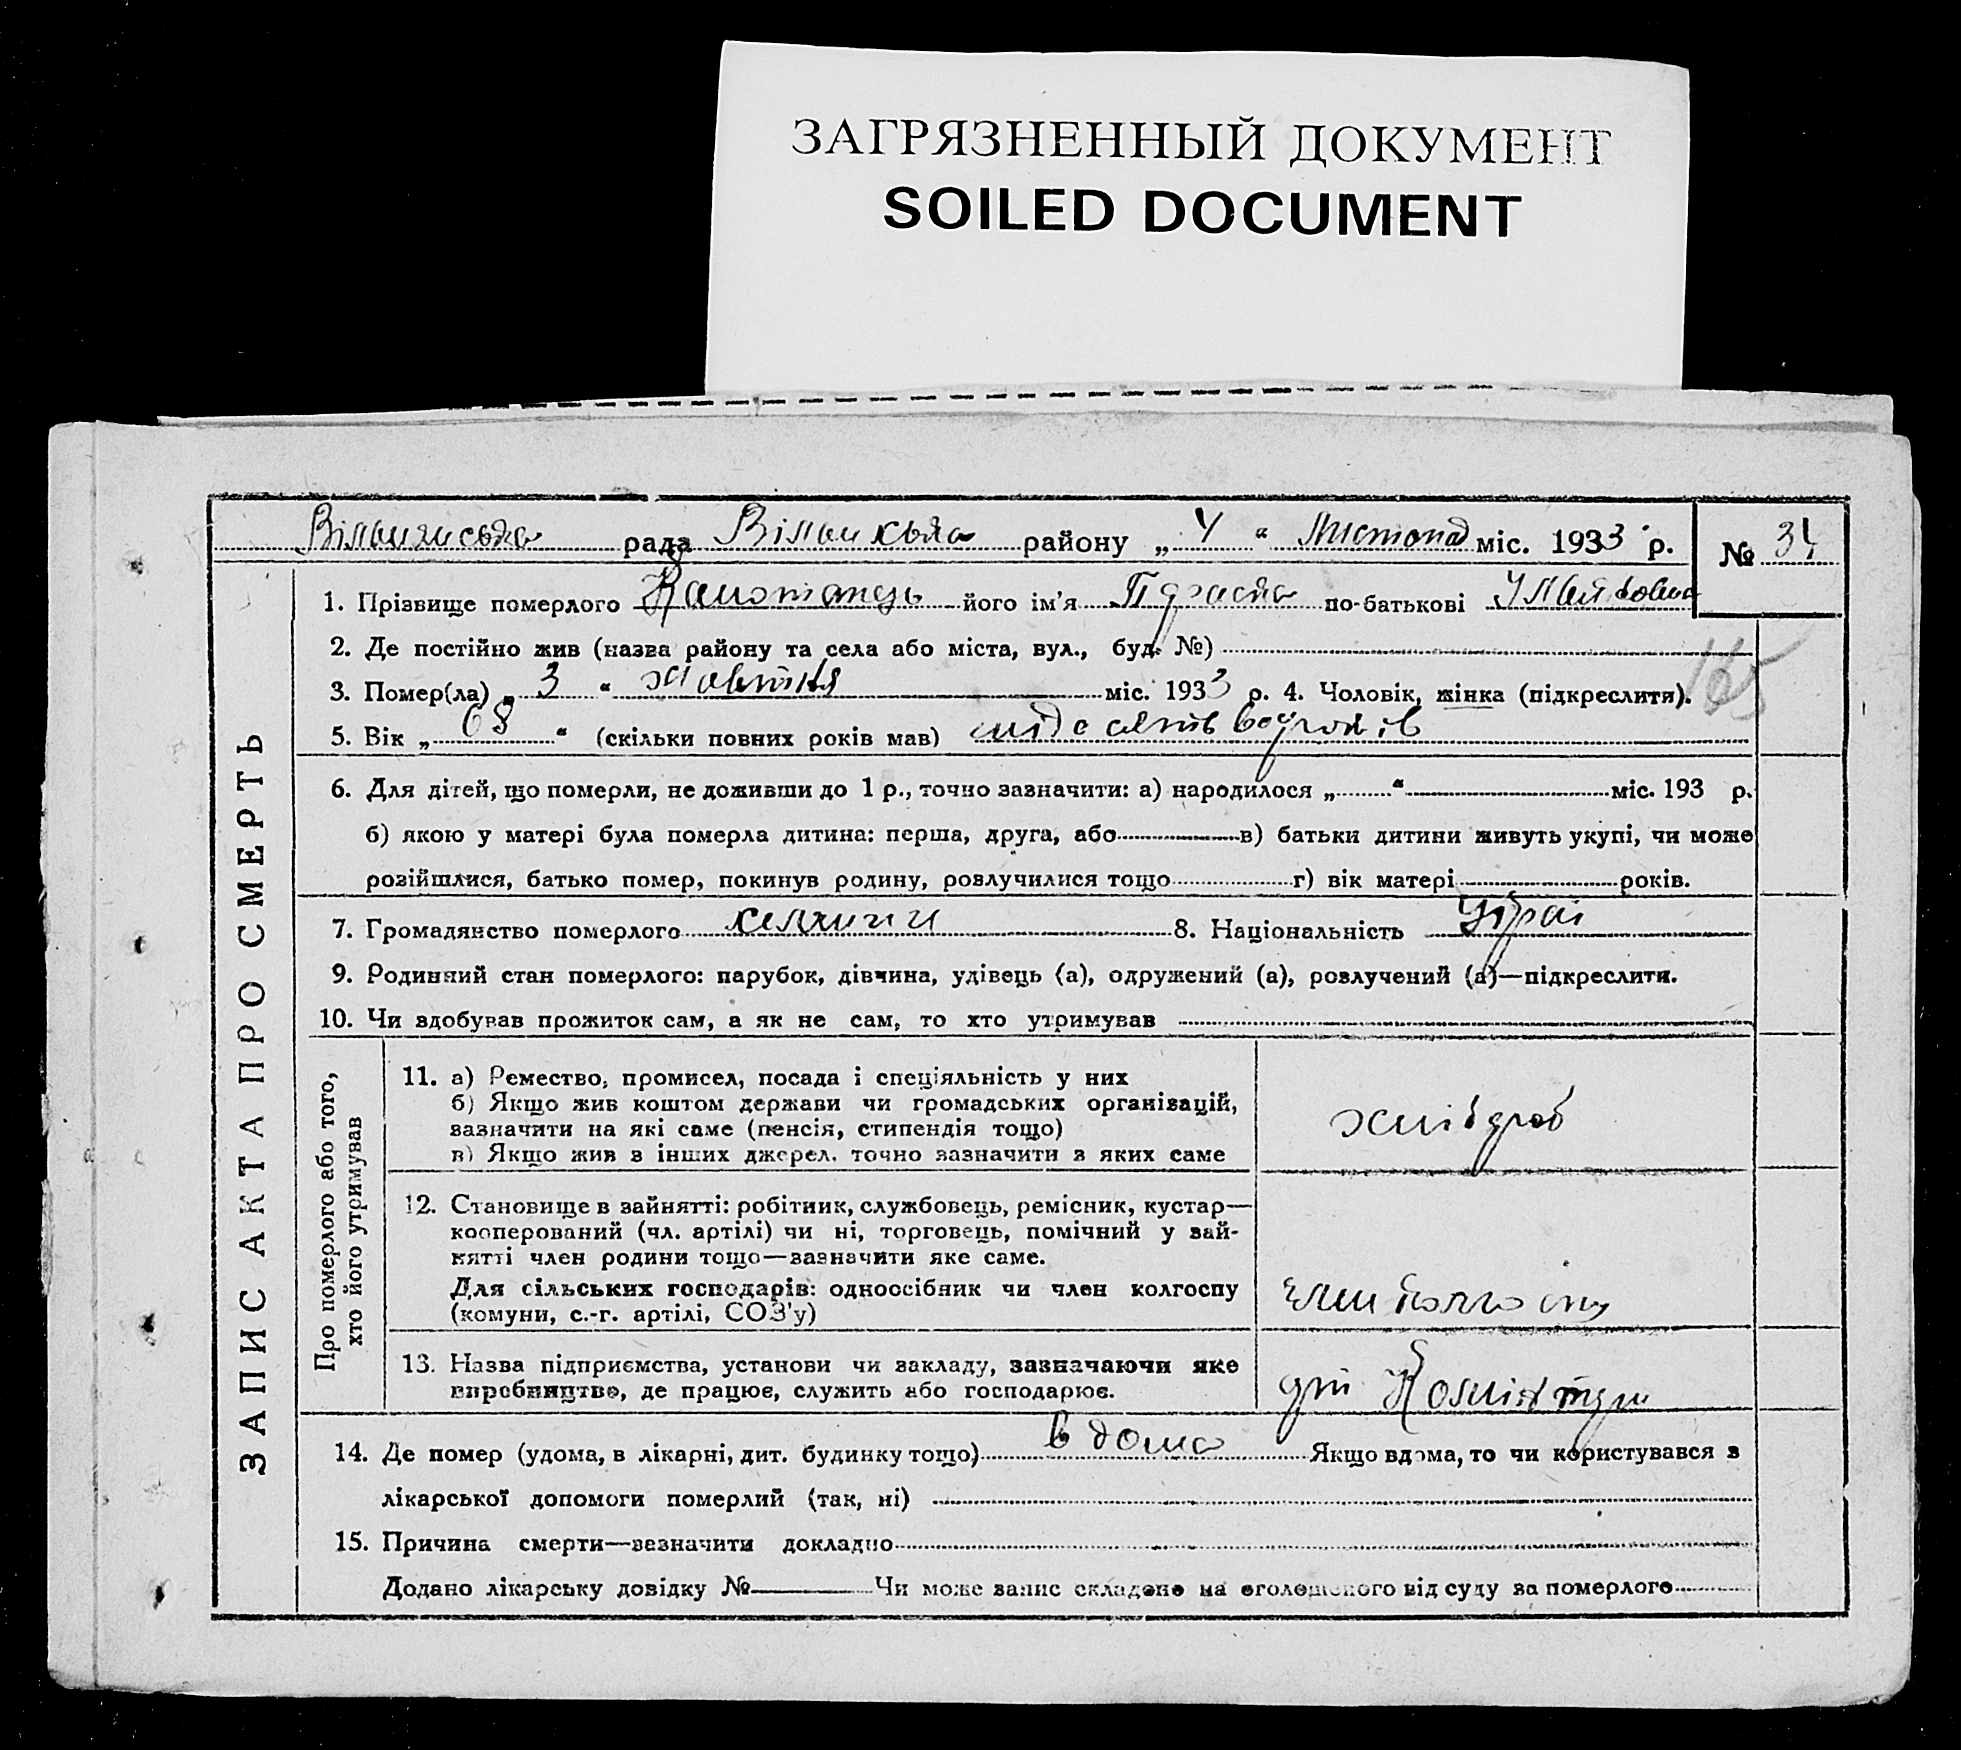 ЗАГРЯЗНЕННЫЙ ДОКУМЕНТ
SOILED DOCUMENT
рада району „ 4 “ Листопад міс. 1933 р. № 34
1. Прізвище померлого його ім'я по-батькові
2. Де постійно жив (назва району та села або міста, вул., буд. №)
165
3. Помер(ла) „ 3 “ міс. 1933 р. 4. Чоловік, жінка (підкреслити).
5. Вік „ 68 “ (скільки повних років мав)
6. Для дітей, що померли, не доживши до 1 р., точно зазначити: а) народилося „ “ міс. 193 р.
б) якою у матері була померла дитина: перша, друга, або в) батьки дитини живуть укупі, чи може
розійшлися, батько помер, покинув родину, розлучилися тощо г) вік матері років.
7. Громадянство померлого 8. Національність Украї
9. Родинний стан померлого: парубок, дівчина, удівець (а), одружений (а), розлучений (а)—підкреслити.
10. Чи здобував прожиток сам, а як не сам, то хто утримував
ЗАПИС АКТА ПРО СМЕРТЬ
Про померлого або того,
хто його утримував
11. а) Ремество, промисел, посада і спеціяльність у них
б) Якщо жив коштом держави чи громадських організацій,
зазначити на які саме (пенсія, стипендія тощо)
в) Якщо жив з інших джерел, точно зазначити з яких саме
хлібороб
12. Становище в зайнятті: робітник, службовець, ремісник, кустар—
кооперований (чл. артілі) чи ні, торговець, помічний у зай-
нятті член родини тощо—зазначити яке саме.
Для сільських господарів: одноосібник чи член колгоспу
(комуни, с.-г. артілі, СОЗ'у)
член колгоспу
13. Назва підприємства, установи чи закладу, зазначаючи яке
виробництво, де працює, служить або господарює.
14. Де помер (удома, в лікарні, дит. будинку тощо) в дома Якщо вдома, то чи користувався з
лікарської допомоги померлий (так, ні)
15. Причина смерти—зазначити докладно
Додано лікарську довідку № Чи може запис складено на оголошеного від суду за померлого